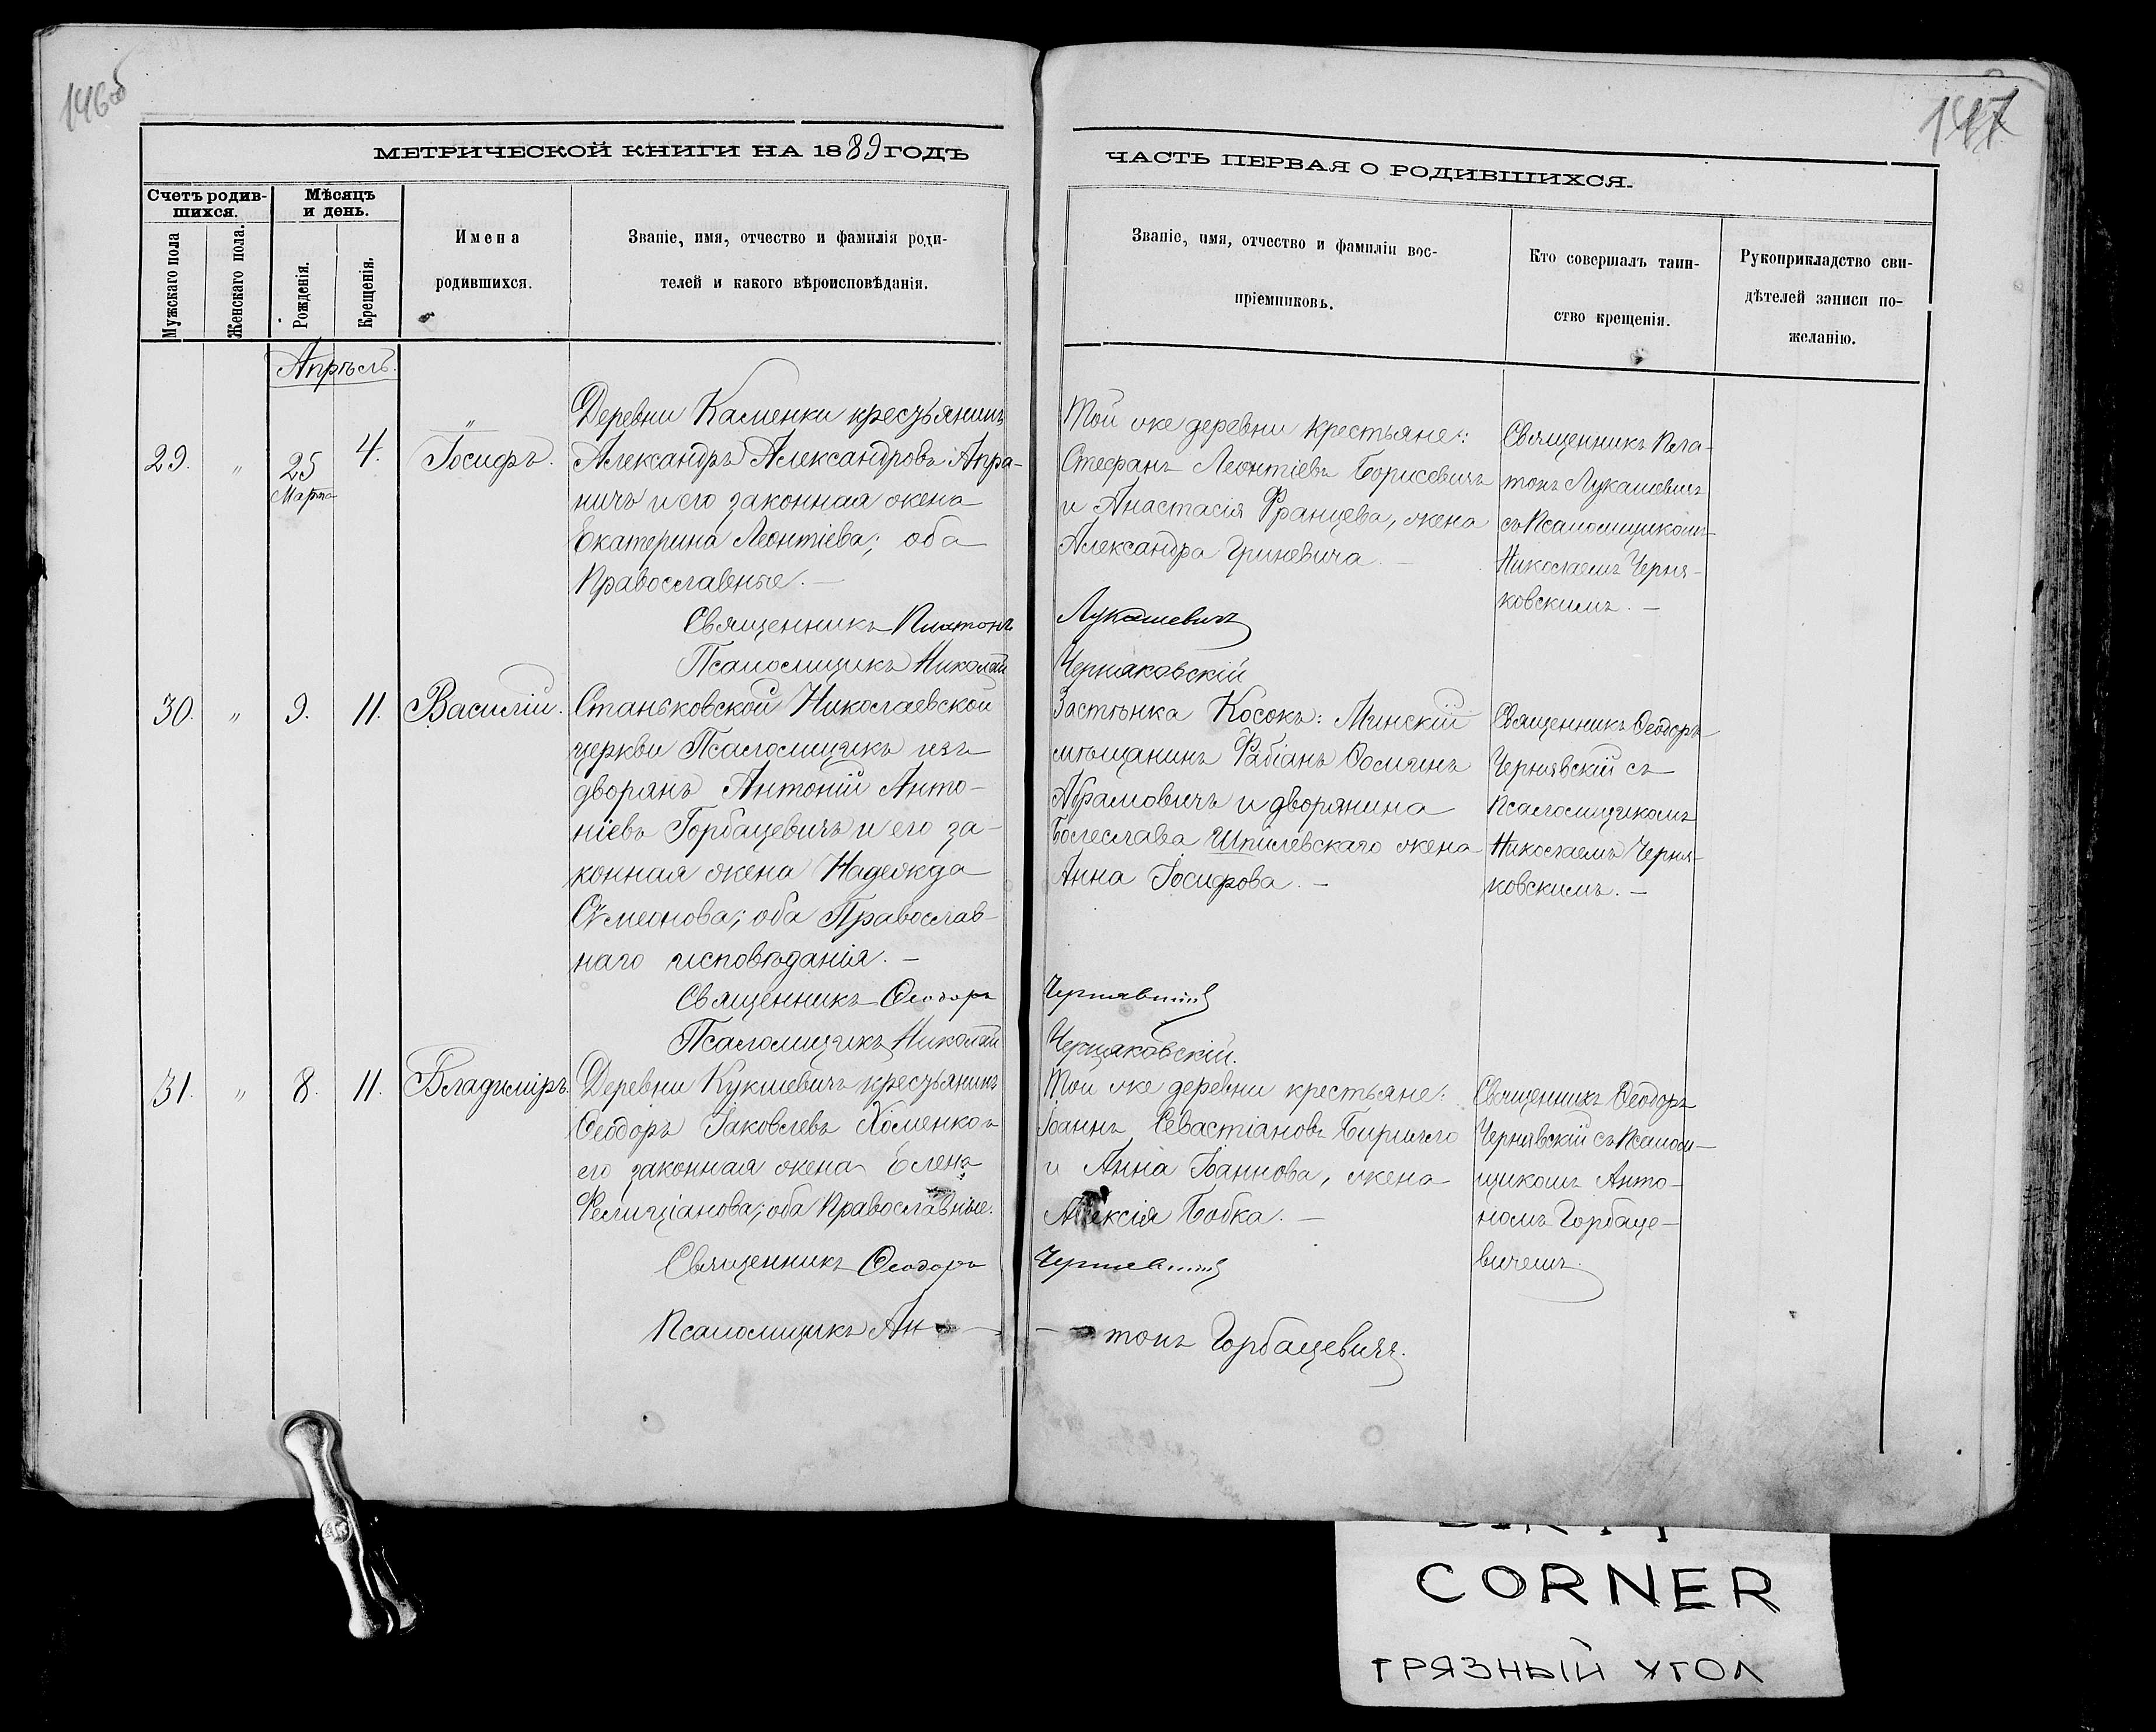 146об
147
МЕТРИЧЕСКОЙ КНИГИ НА 1889 ГОДЪ
Счетъ родив-
шихся.
Мѣсяцъ
и день.
Мужскаго пола
Женскаго пола.
Рожденія.
Крещенія.
Имена
родившихся.
Званіе, имя, отчество и фамилія роди-
телей и какого вѣроисповѣданія.
Апрѣль.
29. " 25 Марта 4. Іосифъ.
Деревни Каменки крестьянинъ
Александръ Александровъ Апра-
ничъ и его законная жена
Екатерина Леонтіева; оба
Православные. —
Священникъ Платонъ
Псаломщикъ Николай
30. " 9. 11. Василій.
Станьковской Николаевской
церкви Псаломщикъ изъ
дворянъ Антоній Анто-
ніевъ Горбацевичъ и его за-
конная жена Надежда
Сѵмеонова; оба Православ-
наго исповѣданія. —
Священникъ Ѳеодоръ
Псаломщикъ Николай
31. " 8. 11. Владиміръ.
Деревни Кукшевичъ крестьянинъ
Ѳеодоръ Іаковлевъ Хоменко и
его законная жена Елена
Фелиціанова; оба Православные.
Священникъ Ѳеодоръ
Псаломщикъ Ан —
ЧАСТЬ ПЕРВАЯ О РОДИВШИХСЯ.
Званіе, имя, отчество и фамиліи вос-
пріемниковъ.
Кто совершалъ таин-
ство крещенія.
Рукоприкладство сви-
дѣтелей записи по-
желанію.
Той же деревни крестьяне:
Стефанъ Леонтіевъ Борисевичъ
и Анастасія Францева, жена
Александра Гриневича. —
Священникъ Пла-
тонъ Лукашевичъ
съ Псаломщикомъ
Николаемъ Черня-
ковскимъ. —
Лукашевичъ
Черняковскій
Застѣнка Косокъ: Минскій
мѣщанинъ Фабіанъ Ѳоминъ
Абрамовичъ и дворянина
Болеслава Шпилевскаго жена
Анна Іосифова. —
Священникъ Ѳеодоръ
Чернявскій съ
Псаломщикомъ
Николаемъ Черня-
ковскимъ. —
Чернявскій
Черняковскій.
Той же деревни крестьяне:
Іоаннъ Севастіановъ
и Анна Іоаннова, жена
Алексія Бобка. —
Священникъ Ѳеодоръ
Чернявскій съ Псалом-
щикомъ Анто-
номъ Горбаце-
вичемъ.
Чернявскій
— тонъ Горбацевичъ.
CORNER
ГРЯЗНЫЙ УГОЛ